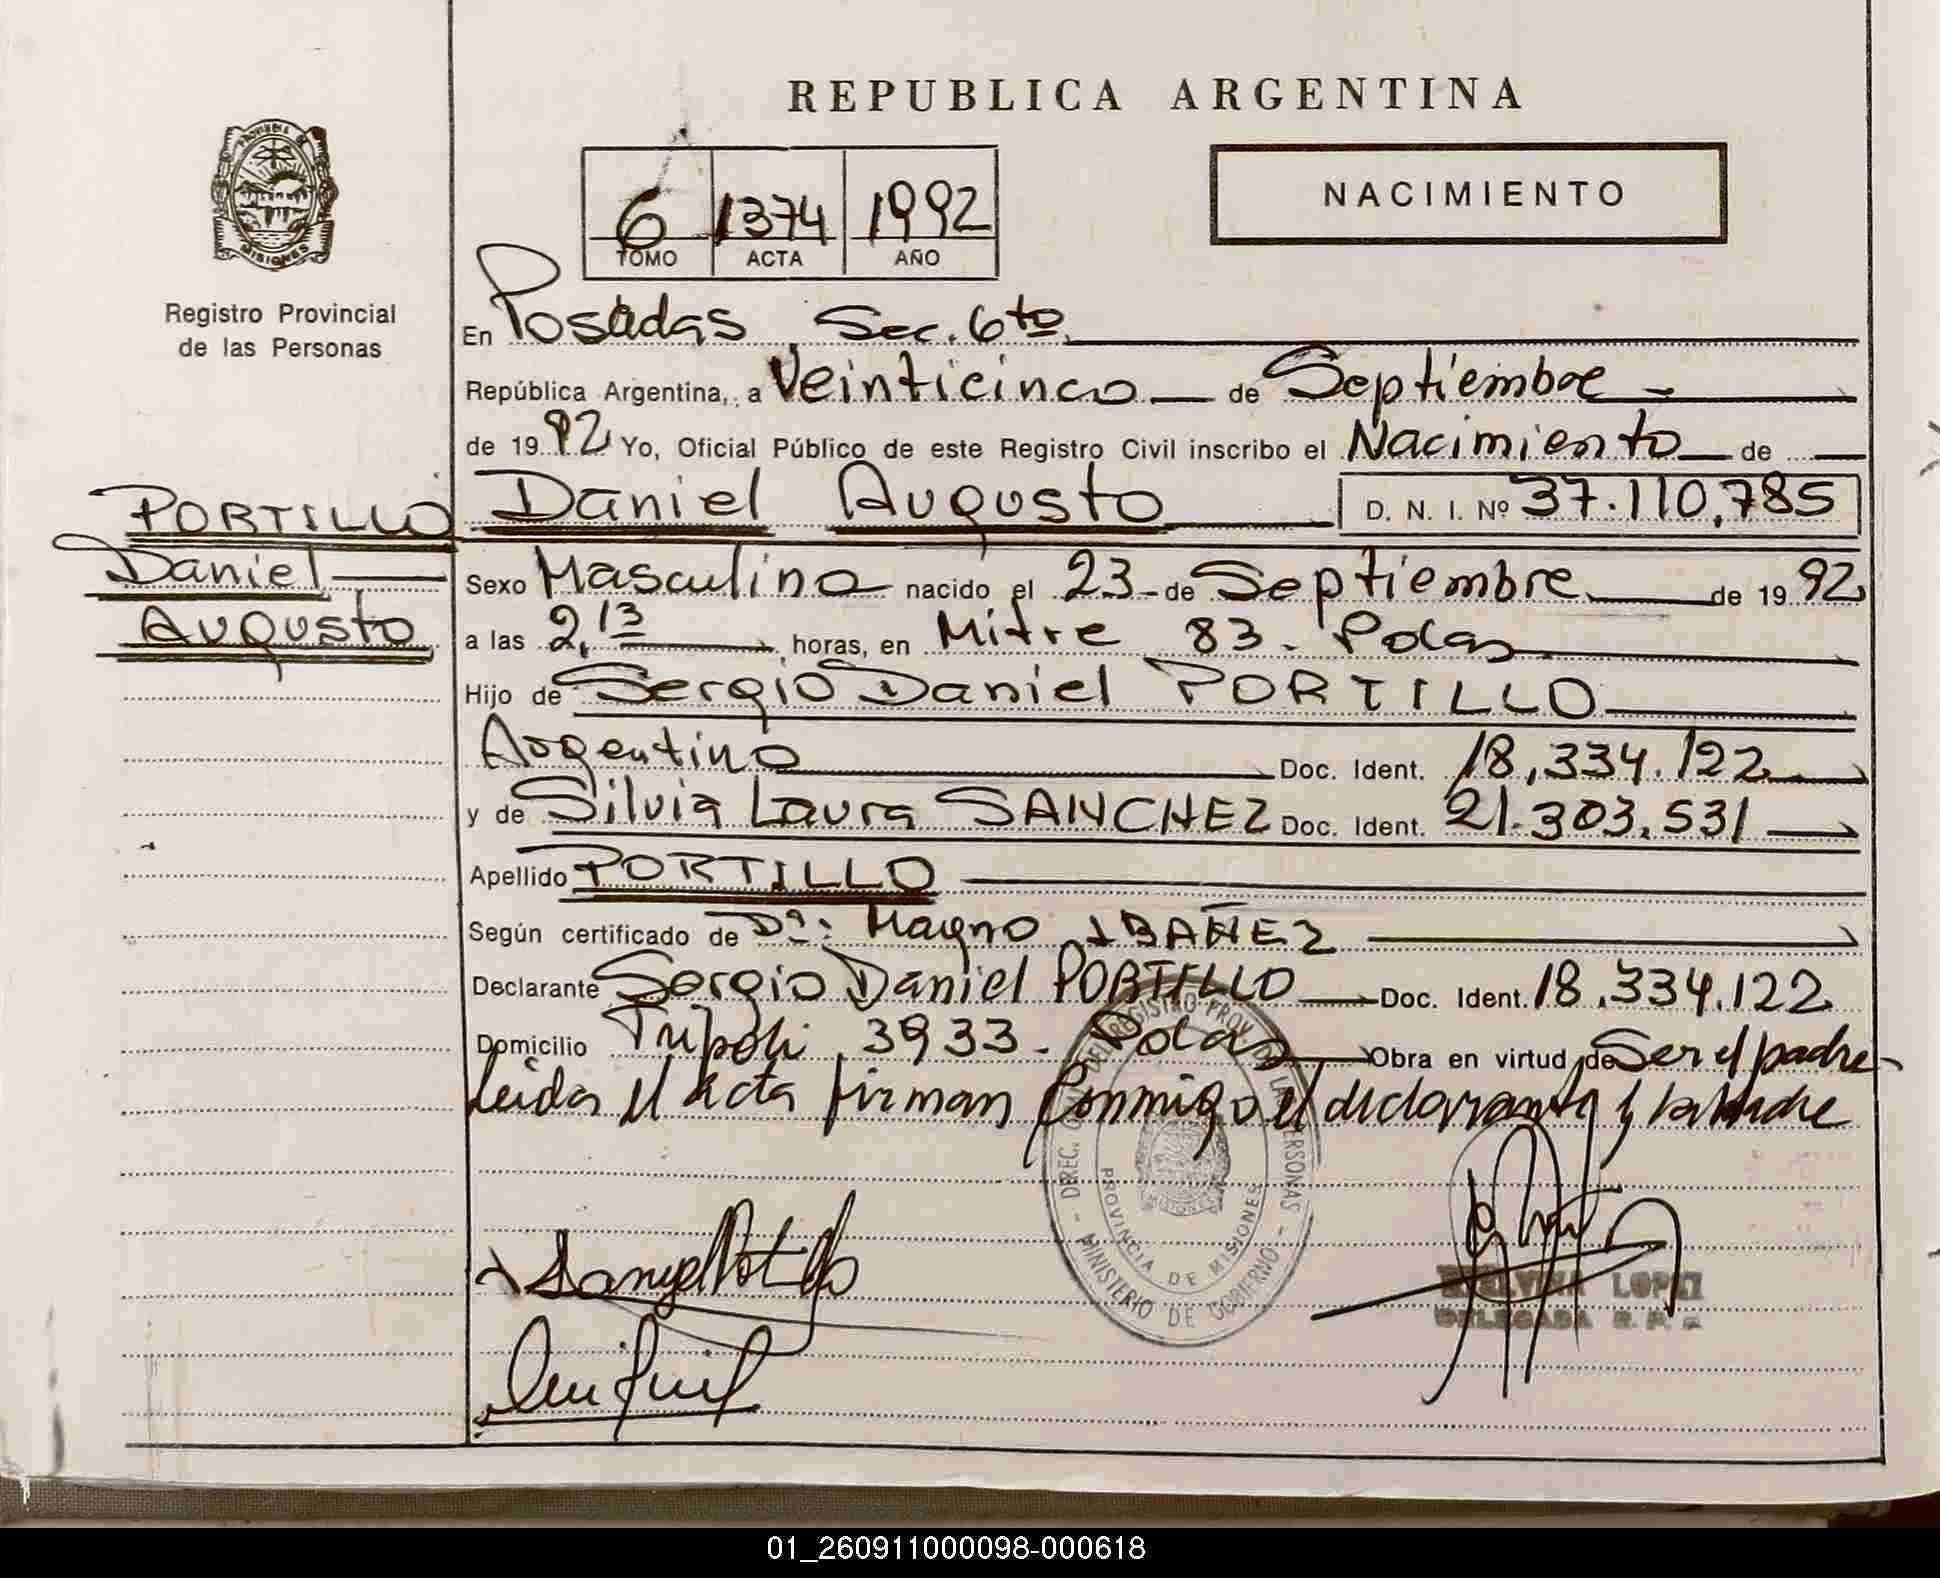 REPUBLICA ARGENTINA
NACIMIENTO
6 1374 1992
TOMO ACTA AÑO
PROVINCIA DE MISIONES
Registro Provincial
de las Personas
En Posadas, Sec. 6to
República Argentina, a Veinticinco de Septiembre
de 1992 Yo, Oficial Público de este Registro Civil inscribo el Nacimiento de
PORTILLO
Daniel
Augusto
Daniel Augusto D. N. I. Nº 37.110,785
Sexo Masculino nacido el 23 de Septiembre de 1992
a las 2,13 horas, en Mitre 83 - Pdas
Hijo de Sergio Daniel PORTILLO
Argentino Doc. Ident. 18,334.122
y de Silvia Laura SANCHEZ Doc. Ident. 21.303.531
Apellido PORTILLO
Según certificado de Magno IBAÑEZ
Declarante Sergio Daniel PORTILLO Doc. Ident. 18.334.122
Domicilio Tripoli 3933 - Pdas Obra en virtud de Ser el padre
Leida el acta firman Conmigo el declarante y la Madre
DIREC. GRAL. DEL REGISTRO PROV. DE LAS PERSONAS
PROVINCIA DE MISIONES
MINISTERIO DE GOBIERNO
LOPEZ
DELEGADA R. P.
01_260911000098-000618